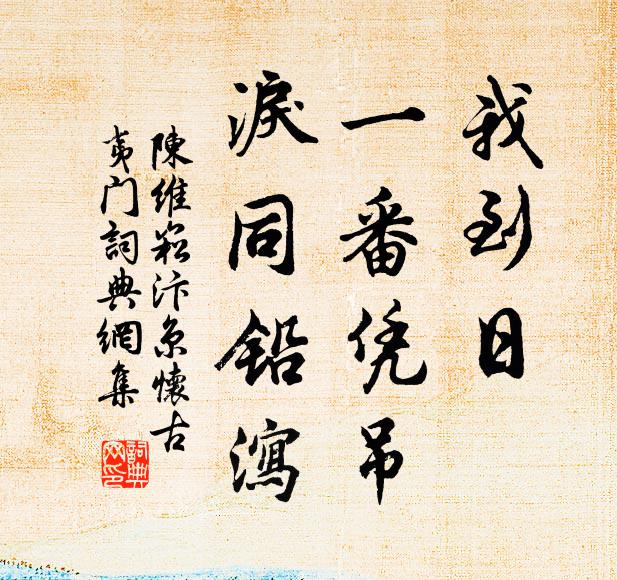 我到日
一番凭吊
淚同鉛瀉
陳維崧汴京懷古
夷门詞典網集
詞典网印